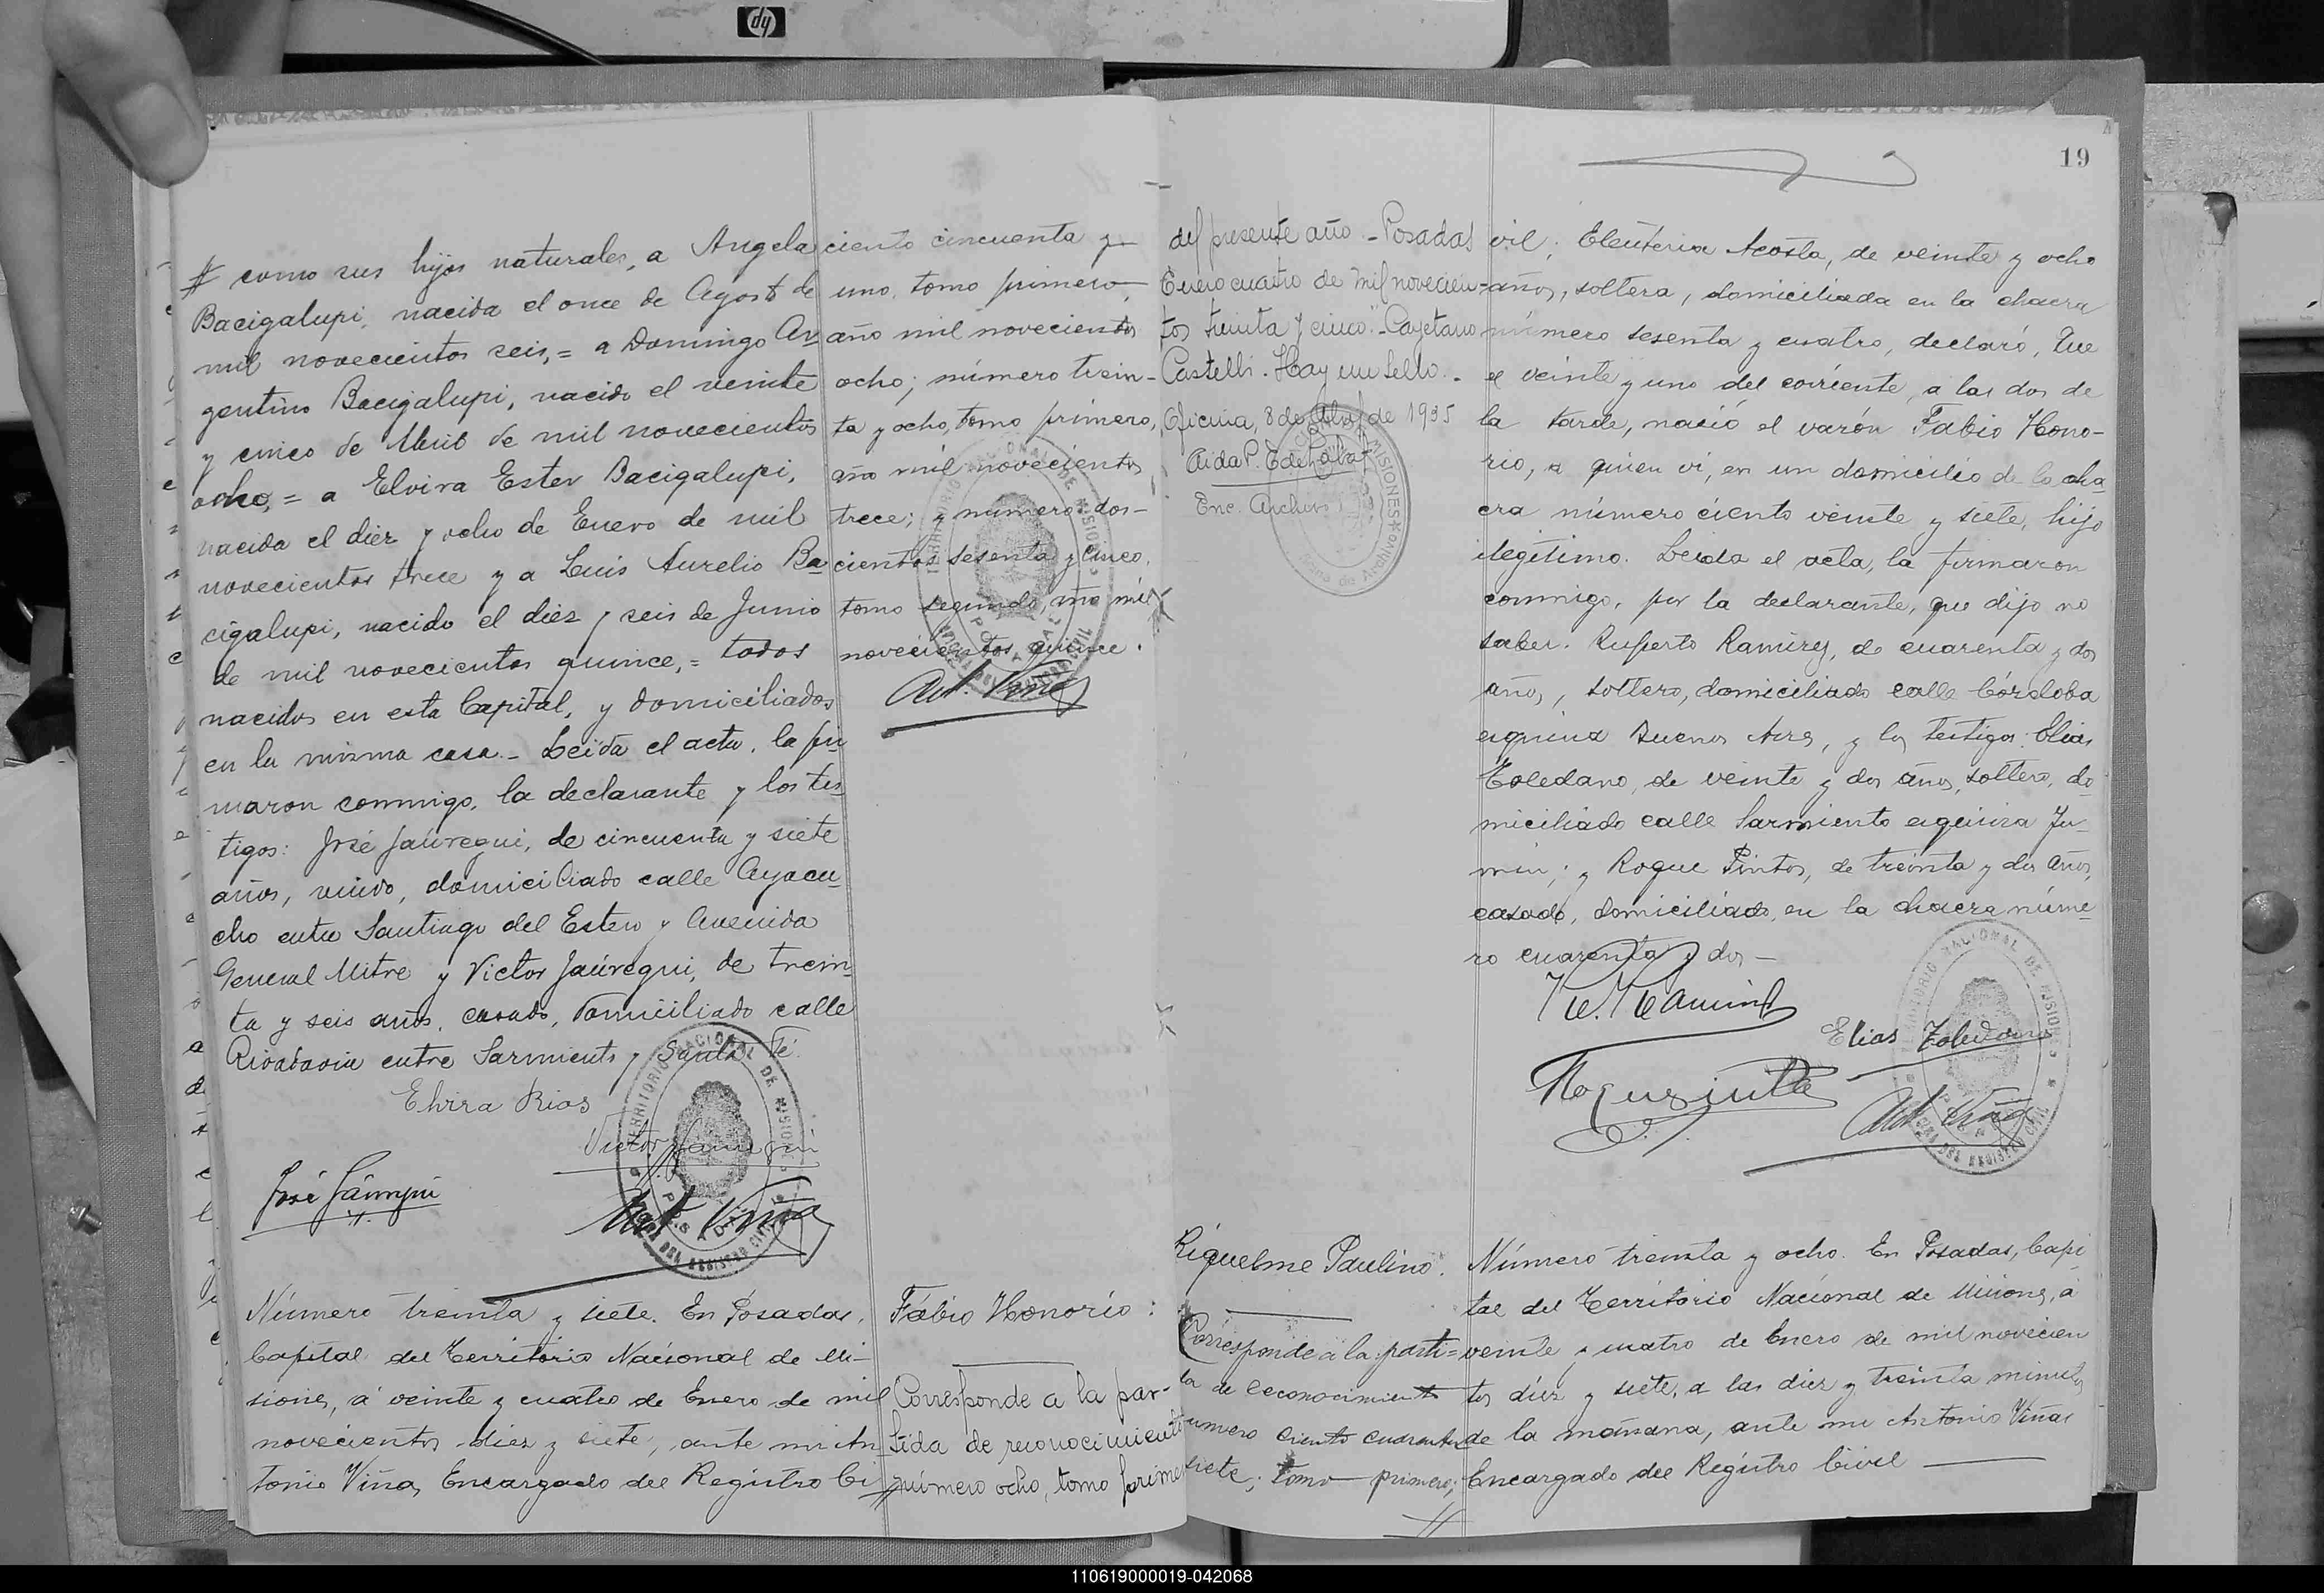 hp
# como sus hijos naturales, a Angela
Bacigalupi, nacida el once de Agosto de
mil novecientos seis,= a Domingo Ar
gentino Bacigalupi, nacido el veinte
y cinco de Abril de mil novecientos
ocho,= a Elvira Ester Bacigalupi,
nacida el diez y ocho de Enero de mil
novecientos trece y a Luis Aurelio Ba
cigalupi, nacido el diez y seis de Junio
de mil novecientos quince,= todos
nacidos en esta Capital, y domiciliados
en la misma casa.- Leida el acta, la fir
maron conmigo, la declarante y los tes
tigos: José Jaúregui, de cincuenta y siete
años, viudo, domiciliado calle Ayacu
cho entre Santiago del Estero y Avenida
General Mitre y Victor Jaúregui, de trein
ta y seis años, casado, domiciliado calle
Rivadavia entre Sarmiento y Santa Fé.
Elvira Rios
Victor Jauregui
José Jáuregui
Ant. Viña
TERRITORIO NACIONAL DE MISIONES
POSADAS
OFICINA DEL REGISTRO CIVIL
ciento cincuenta y
uno, tomo primero,
año mil novecientos
ocho; número trein-
ta y ocho, tomo primero,
año mil novecientos
trece; y número dos-
cientos sesenta y cinco,
tomo segundo, año mil
novecientos quince.
Ant. Viña
TERRITORIO NACIONAL DE MISIONES
POSADAS
OFICINA DEL REGISTRO CIVIL
Número treinta y siete. En Posadas,
Capital del Territorio Nacional de Mi-
siones, á veinte y cuatro de Enero de mil
novecientos diez y siete, ante mi An
tonio Viña, Encargado del Registro Ci
Fabio Honorio:
Corresponde a la par-
tida de reconocimiento
número ocho, tomo prime
19
del presente año.- Posadas
Enero cuatro de mil novecien-
tos treinta y cinco.- Cayetano
Castelli.- Hay un sello.-
Oficina, 8 de de 1935
Aida P.
Enc. Archivo
MISIONES
de Archivo
vil; Eleuteria Acosta, de veinte y ocho
años, soltera, domiciliada en la chacra
número sesenta y cuatro, declaró, Que
el veinte y uno del corriente, a las dos de
la tarde, nació el varón Fabio Hono-
rio, a quien vi, en un domicilio de la cha
cra número ciento veinte y siete, hijo
ilegítimo. Leida el acta, la firmaron
conmigo, por la declarante, que dijo no
saber. Ruperto Ramirez, de cuarenta y dos
años, soltero, domiciliado calle Córdoba
esquina Buenos Aires, y los testigos: Elias
Toledano, de veinte y dos años, soltero, do
miciliado calle Sarmiento esquina Ju-
nin; y Roque Pintos, de treinta y dos años,
casado, domiciliado, en la chacra núme
ro cuarenta y dos —
R. Ramirez
Elias Toledano
Roque Pintos
Ant. Viña
TERRITORIO NACIONAL DE MISIONES
POSADAS
OFICINA DEL REGISTRO CIVIL
Riquelme Paulino.
Corresponde a la parti=
da de reconocimiento
numero ciento cuarenta
siete; tomo primero;
Número treinta y ocho. En Posadas, Capi
tal del Territorio Nacional de Misiones, á
veinte y cuatro de Enero de mil novecien
tos diez y siete, a las diez y treinta minutos
de la mañana, ante mi Antonio Viña,
Encargado del Registro Civil —
110619000019-042068